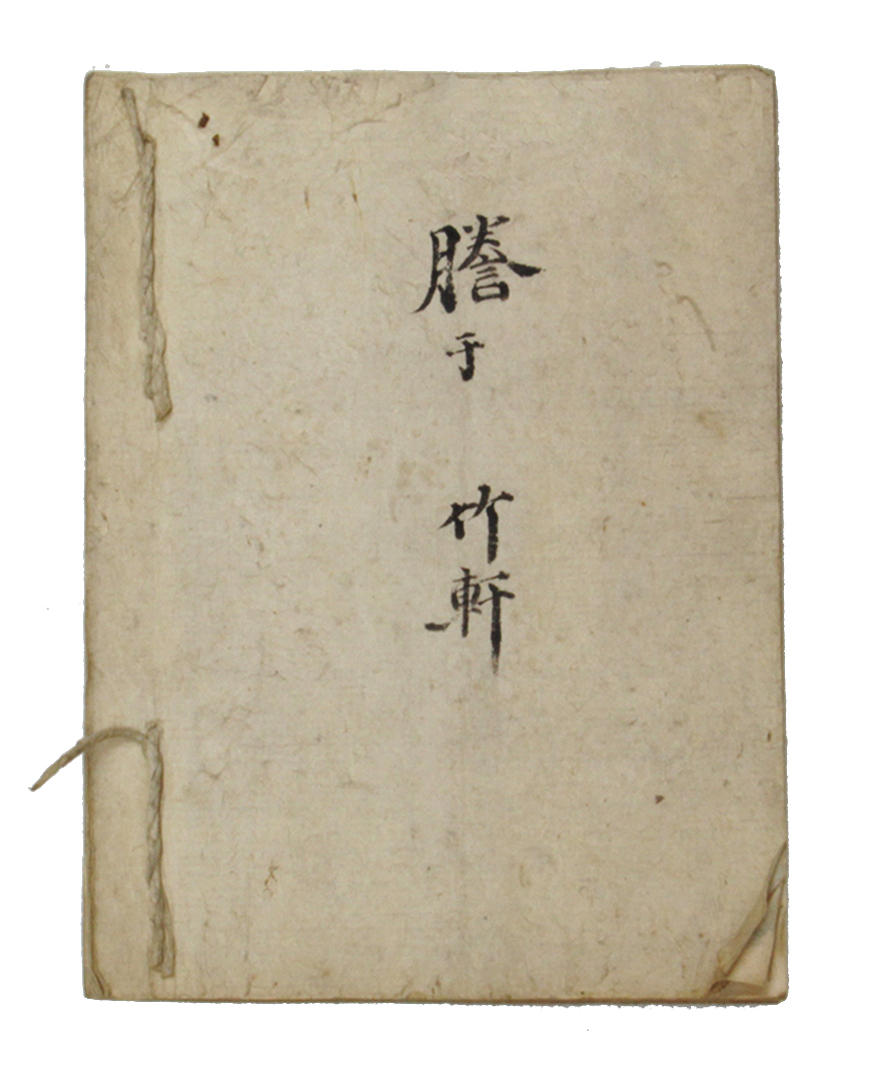 謄于竹軒